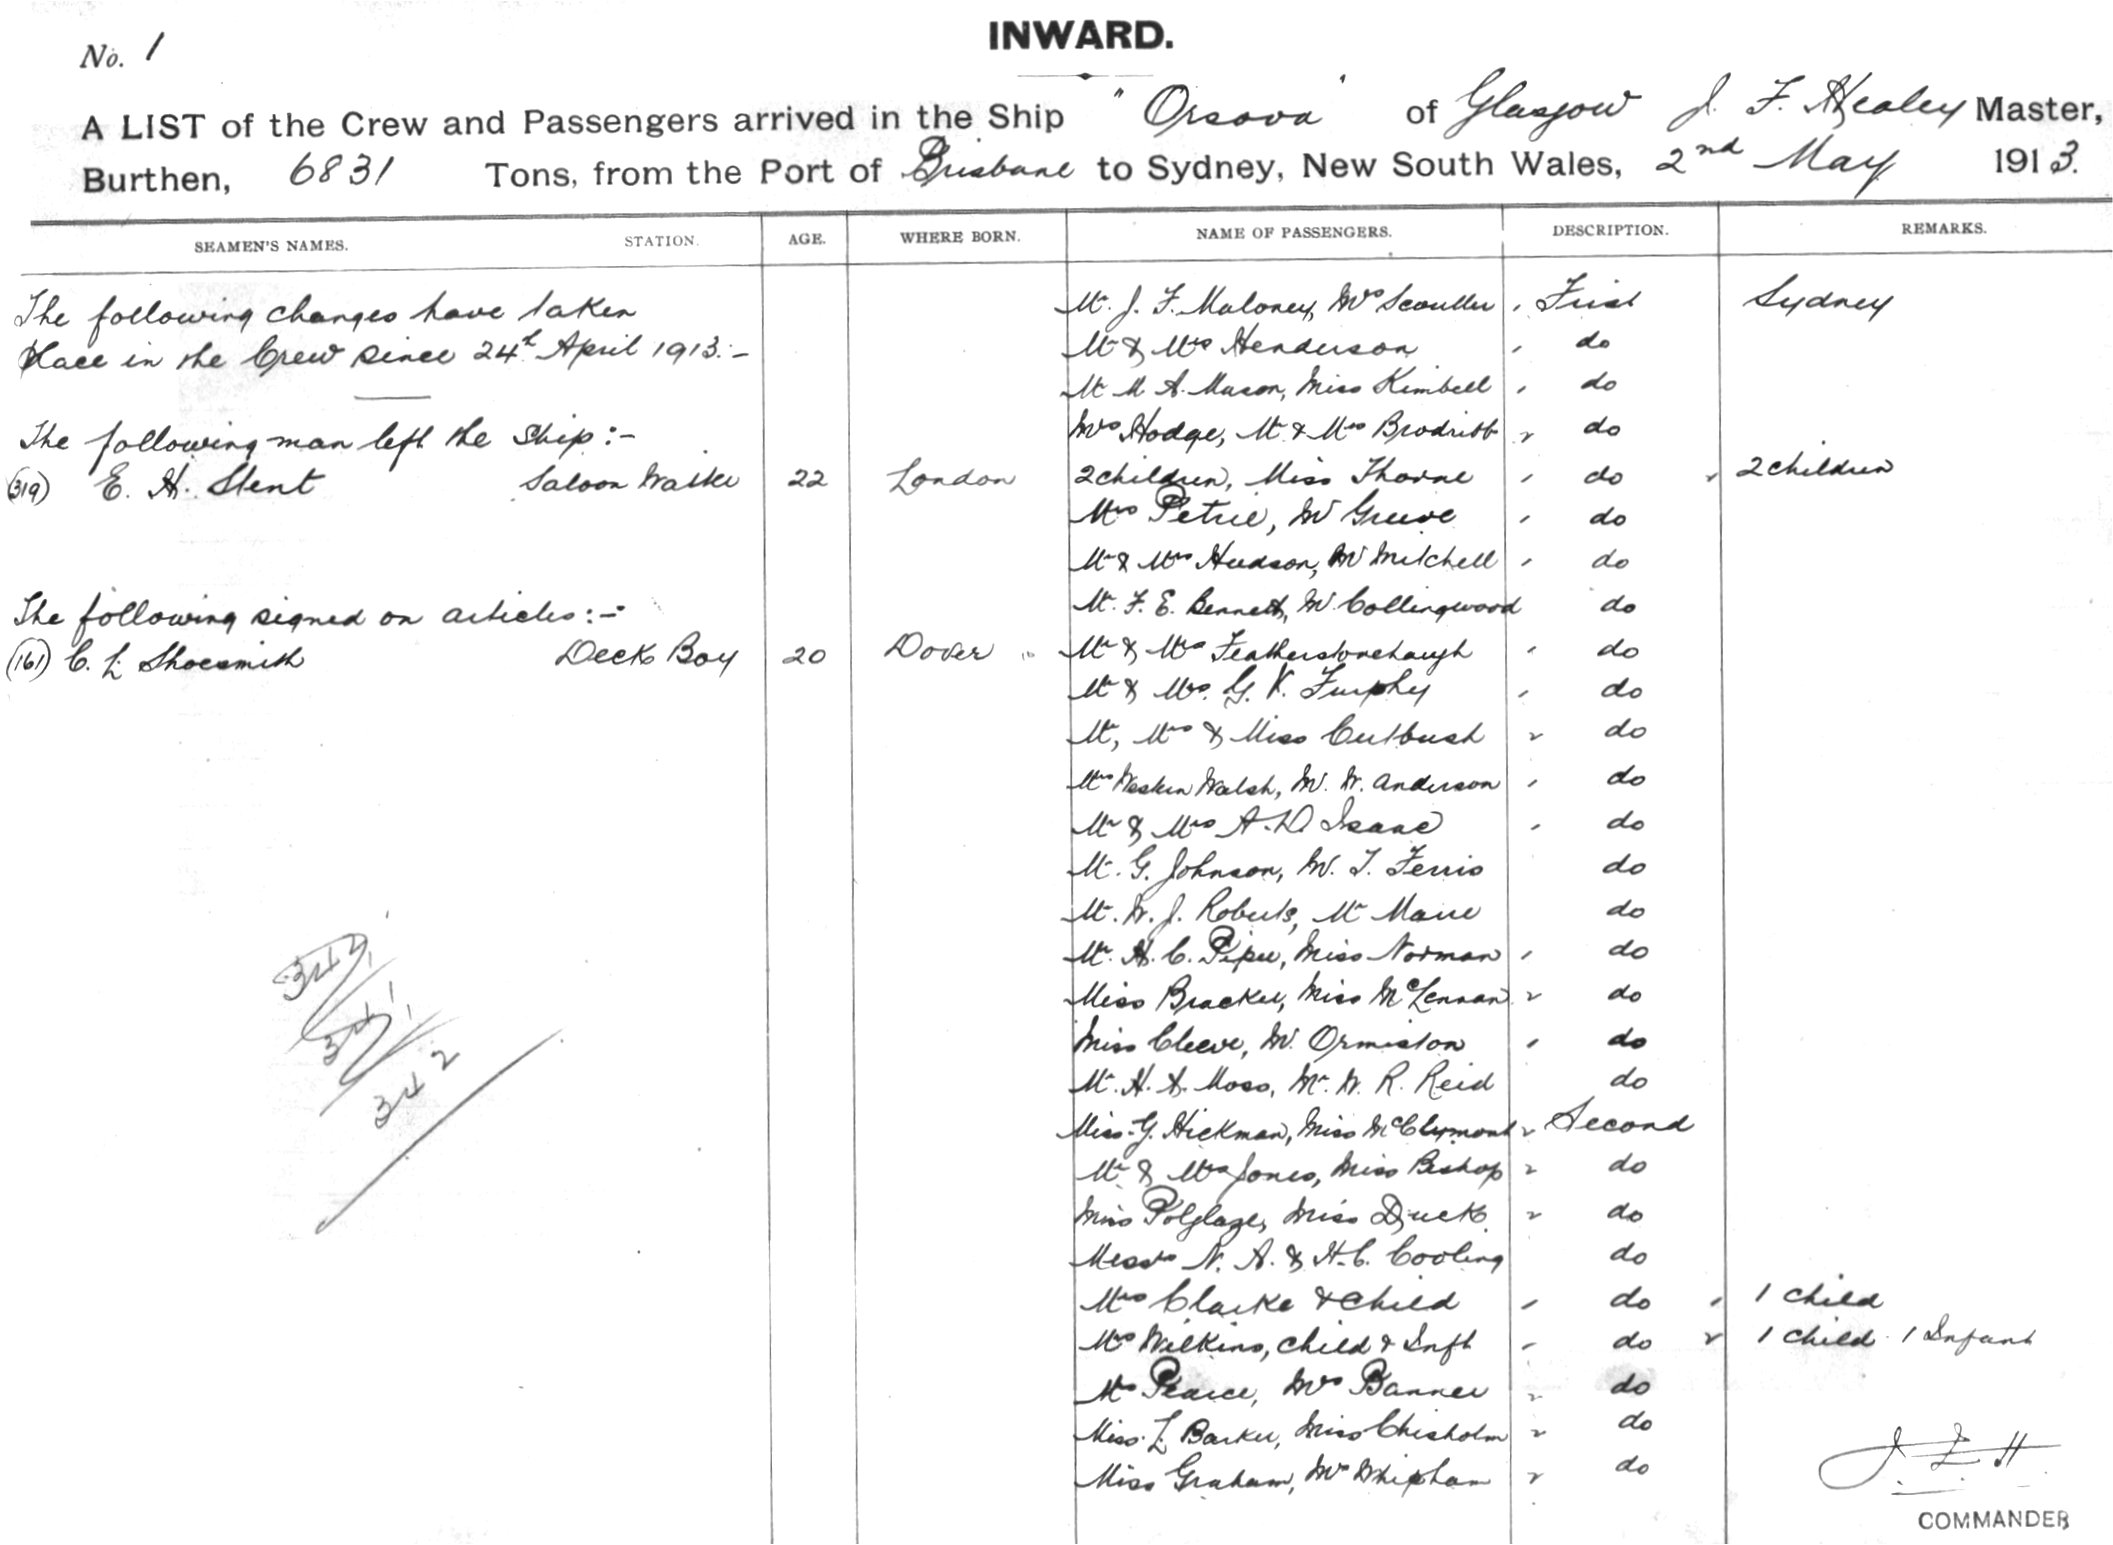 No. 1
INWARD.
A LIST of the Crew and Passengers arrived in the Ship "Orsova" of Glasgow J. F. Healey Master,
Burthen, 6831 Tons, from the Port of Brisbane to Sydney, New South Wales, 2nd May 1913.
SEAMEN'S NAMES. STATION. AGE. WHERE BORN. NAME OF PASSENGERS. DESCRIPTION. REMARKS.
The following changes have taken
place in the Crew since 24th April 1913:-
The following man left the Ship:-
(319) E. H. Stent Saloon Waiter 22 London
The following signed on articles:-
(161) C. L. Shoesmith Deck Boy 20 Dover
342
341
342
Mr. J. F. Maloney, Mrs Scouller First Sydney
Mr & Mrs Henderson do
Mr M A. Mason, Miss Kimbell do
Mrs Hodge, Mr & Mrs Brodribb do
2 children, Miss Thorne do 2 children
Mrs Petrie, Mr Greeve do
Mr & Mrs Hudson, Mr Mitchell do
Mr. F. E. Bennett, Mr Collingwood do
Mr & Mrs Featherstonehaugh do
Mr & Mrs. G. K. Furphy do
Mr, Mrs & Miss Cutbush do
Mrs Westen Walsh, Mr. W. Anderson do
Mr & Mrs A. D Isaac do
Mr. G. Johnson, Mr. T. Ferris do
Mr. W. J. Roberts, Mr do
Mr. H. C. Piper, Miss Norman do
Miss Bracker, Miss McLennan do
Miss Cleeve, Mr. Ormiston do
Mr. H. A. Moss, Mr. W. R. Reid do
Miss. G. Hickman, Miss McClymont Second
Mr & Mrs Jones, Miss Bishop do
Miss Polglaze, Miss Duck do
Messrs N. A. & H. C. Cooling do
Mrs Clarke & Child do 1 child
Mrs Wilkins, child & Inft do 1 child 1 Infant
Mrs Pearce, Mrs Banner do
Miss. L Barker, Miss Chisholm do
Miss Graham, Mrs Whipham do
J F H
COMMANDER